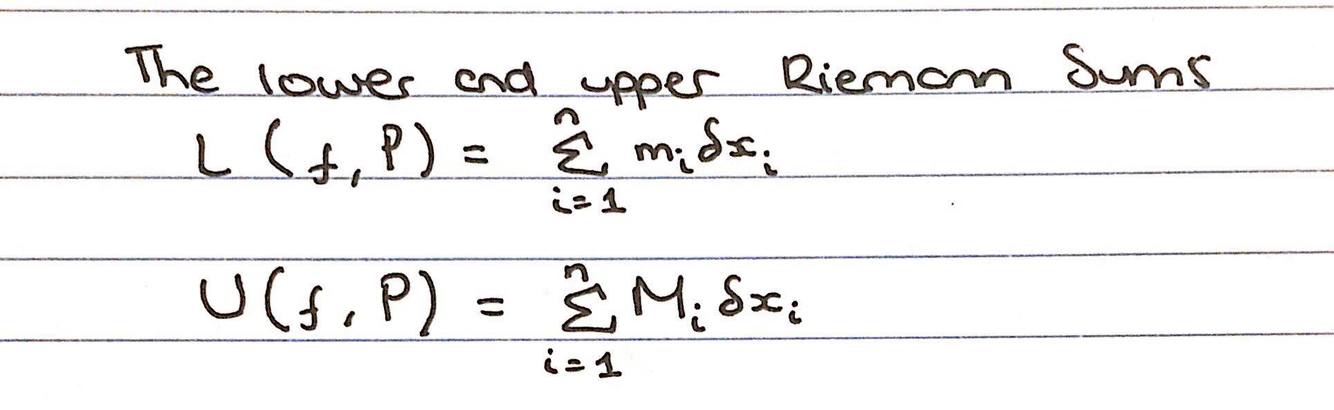 The lower and upper Riemann Sums
L(f, P) = \sum_{i=1}^{n} m_i δx_i
U(f, P) = \sum_{i=1}^{n} M_i δx_i